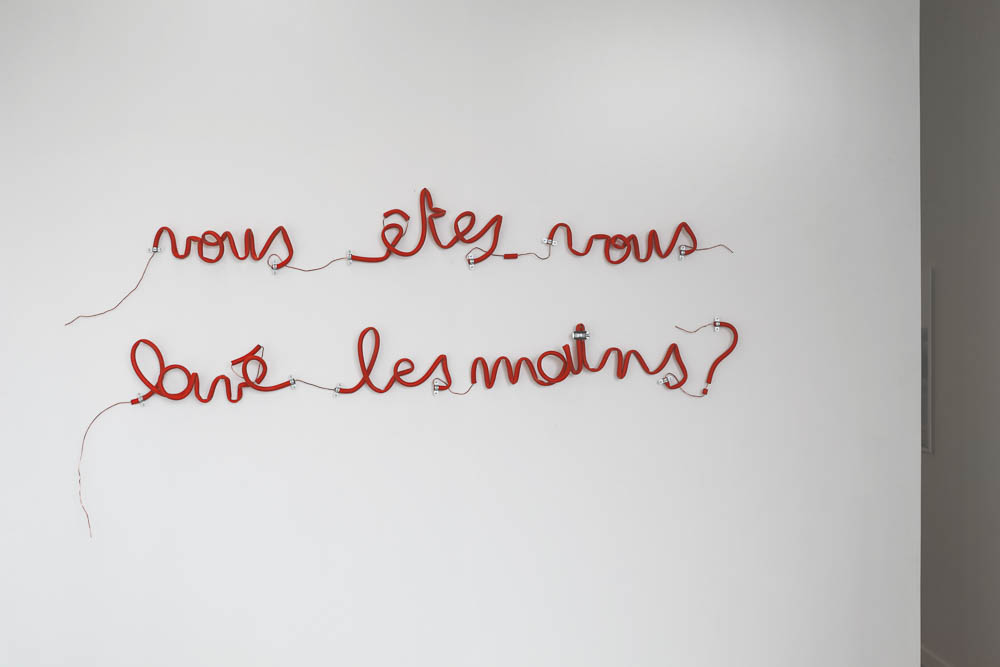 vous êtes vous
lavé les mains?